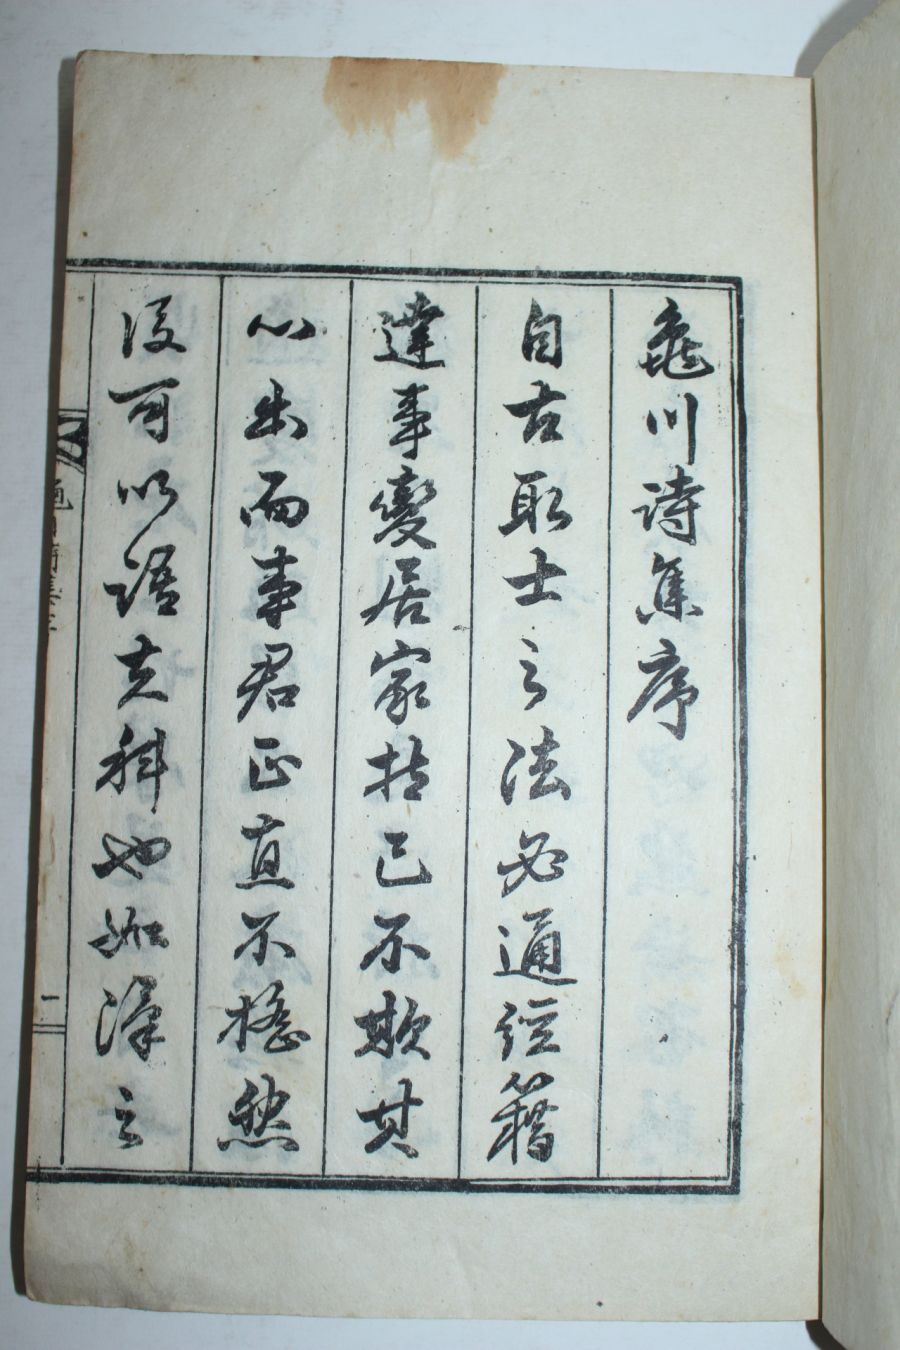 龜川詩集序
自古取士之法必通經籍
達事變居家持己不欺其
心出而事君正直不撓然
後可以語夫科也如漢之
一